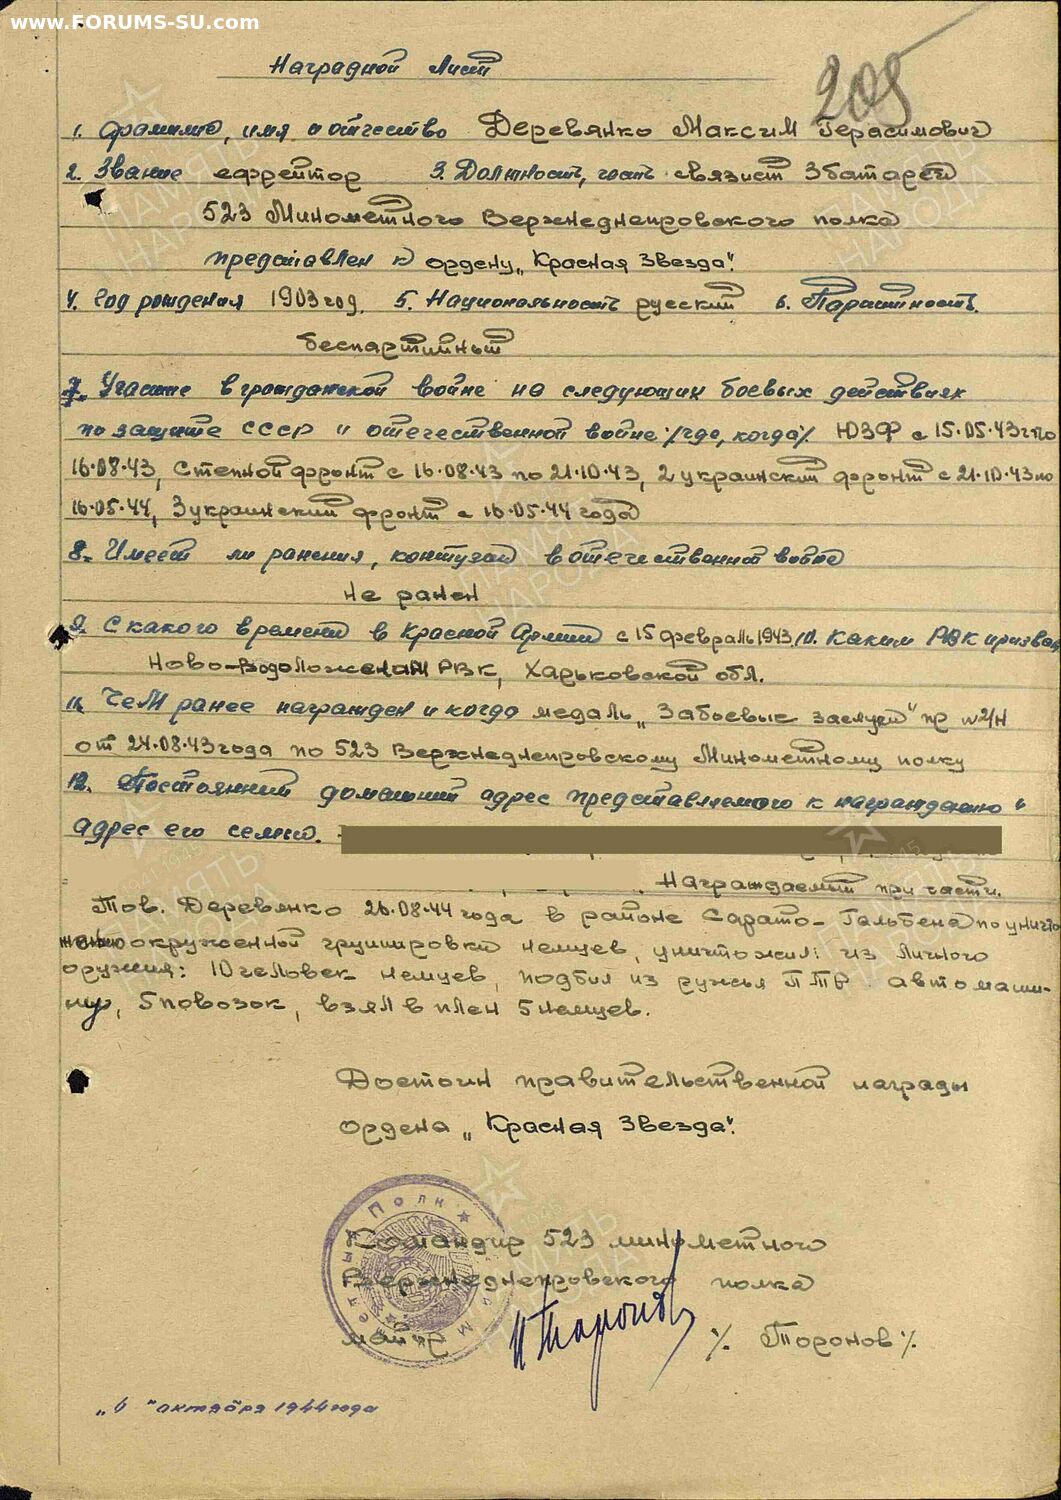 www.FORUMS-SU.com
Наградной лист
205
1. Фамилия, имя и отчество Деревянко Максим Герасимович
2. Звание ефрейтор 3. Должность, часть связист 3 батареи
523 Минометного Верхнеднепровского полка
представлен к ордену „Красная Звезда".
4. Год рождения 1903 год. 5. Национальность русский 6. Партийность.
беспартийный
7. Участие в гражданской войне на следующих боевых действиях
по защите СССР и отечественной войне /где, когда/ ЮЗФ с 15.05.43г по
16.08.43, Степной фронт с 16.08.43 по 21.10.43, 2 украинский фронт с 21.10.43 по
16.05.44, 3 украинский фронт с 16.05.44 года
8. Имеет ли ранения, контузии в отечественной войне
не ранен
9. С какого времени в Красной Армии с 15 февраль 1943. 10. Каким РВК призван
Ново-Водоложским РВК, Харьковской обл.
11. Чем ранее награжден и когда медаль „За боевые заслуги" пр №2/Н
от 24.08.43 года по 523 Верхнеднепровскому Минометному полку
12. Постоянный домашний адрес представляемого к награждению и
адрес его семьи.
Награждаемый при части.
Тов. Деревянко 26.08.44 года в районе Сарато-Гальбена по уничто
жению окруженной группировки немцев, уничтожил: из личного
оружия: 10 человек немцев, подбил из ружья ПТР автомаши-
ну, 5 повозок, взял в плен 5 немцев.
Достоин правительственной награды
ордена „Красная Звезда".
Командир 523 минометного
Верхнеднепровского полка
майор /Торонов/
„6" октября 1944 года
ПАМЯТЬ НАРОДА